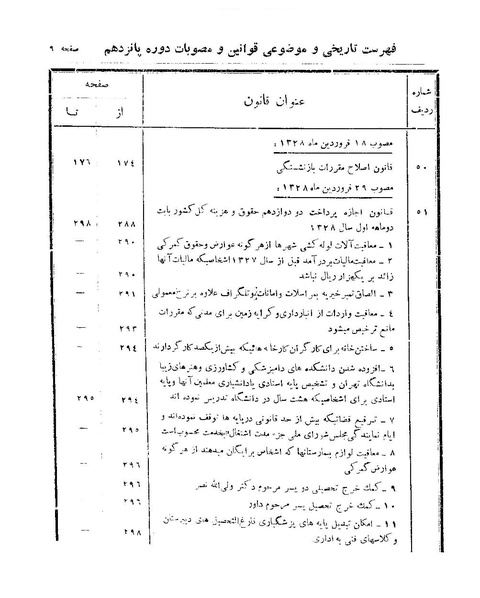 فهرست تاریخی و موضوعی قوانین و مصوبات دوره پانزدهم صفحه ۹
شماره ردیف عنوان قانون صفحه
از تا
مصوب ۱۸ فروردین ماه ۱۳۲۸ :
۵۰ قانون اصلاح مقررات بازنشستگی ۱۷۴ ۱۷۶
مصوب ۲۹ فروردین ماه ۱۳۲۸ :
۵۱ قانون اجازه پرداخت دو دوازدهم حقوق و هزینه کل کشور بابت
دوماهه اول سال ۱۳۲۸ ۲۸۸ ۲۹۸
۱ - معافیت آلات لوله کشی شهرها از هرگونه عوارض وحقوق گمرکی ۲۹۰ —
۲ - معافیت مالیات بردرآمد قبل از سال ۱۳۲۷ اشخاصیکه مالیات آنها
زائد بر یکهزار ریال نباشد ۲۹۰ —
۳ - الصاق تمبر خیریه بمراسلات وامانات پستی وتلگراف علاوه برنرخ معمولی ۲۹۱ —
۴ - معافیت واردات از انبارداری وکرایه زمین برای مدتی که مقررات
مانع ترخیص میشود ۲۹۳ —
۵ - ساختن خانه برای کارگران کارخانه هائیکه بیش از یکصد کارگر دارند ۲۹۴ —
۶ - افزوده شدن دانشکده های دامپزشکی و کشاورزی وهنرهای زیبا
بدانشگاه تهران و تشخیص پایه استادی یادانشیاری معلمین آنها وپایه
استادی برای اشخاصیکه هشت سال در دانشگاه تدریس نموده اند ۲۹۴ ۲۹۵
۷ - ترفیع قضاتیکه بیش از حد قانونی درپایه ها توقف نموده اند و
ایام نمایندگی مجلس شورای ملی جزء مدت اشتغال بخدمت محسوب است ۲۹۵ —
۸ - معافیت لوازم بیمارستانها که اشخاص برایگان میدهند از هرگونه
عوارض گمرکی ۲۹۶ —
۹ - کمک خرج تحصیلی دو پسر مرحوم دکتر ولی الله نصر ۲۹۶ —
۱۰ - کمک خرج تحصیل پسر مرحوم داور ۲۹۶ —
۱۱ - امکان تبدیل پایه های پزشکیاری فارغ التحصیل های دبیرستان
و کلاسهای فنی به اداری ۲۹۸ —